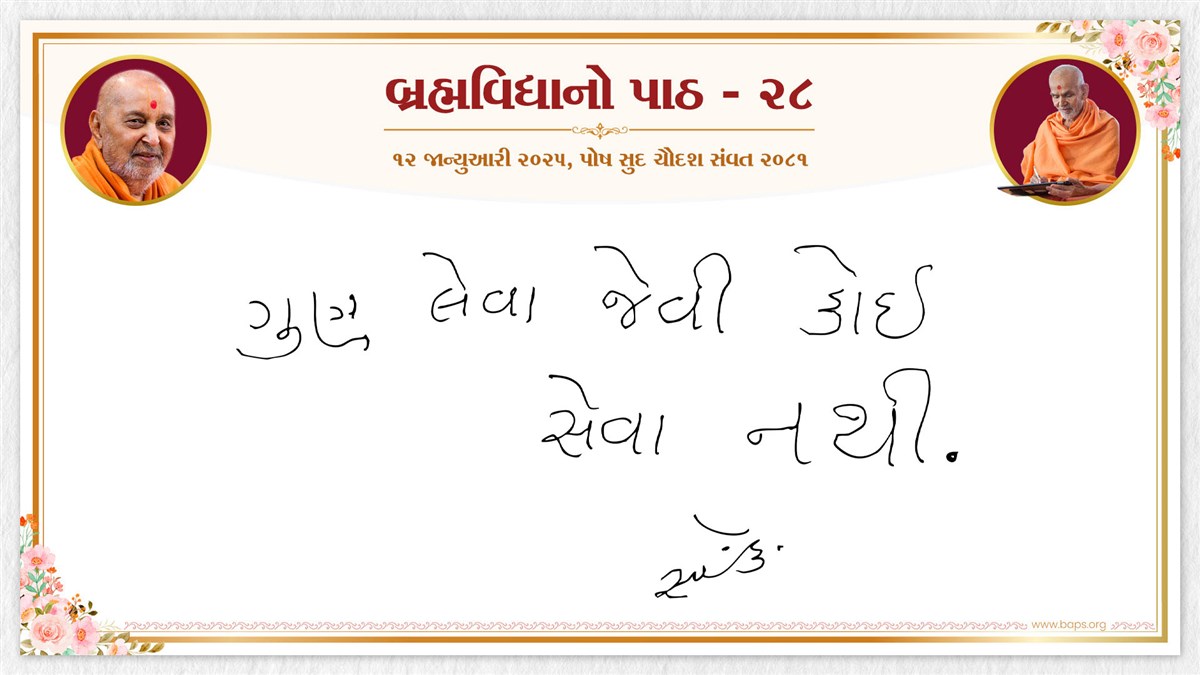 બ્રહ્મવિદ્યાનો પાઠ - ૨૮
૧૨ જાન્યુઆરી ૨૦૨૫, પોષ સુદ ચૌદશ સંવત ૨૦૮૧
ગુણ લેવા જેવી કોઈ
સેવા નથી.
www.baps.org